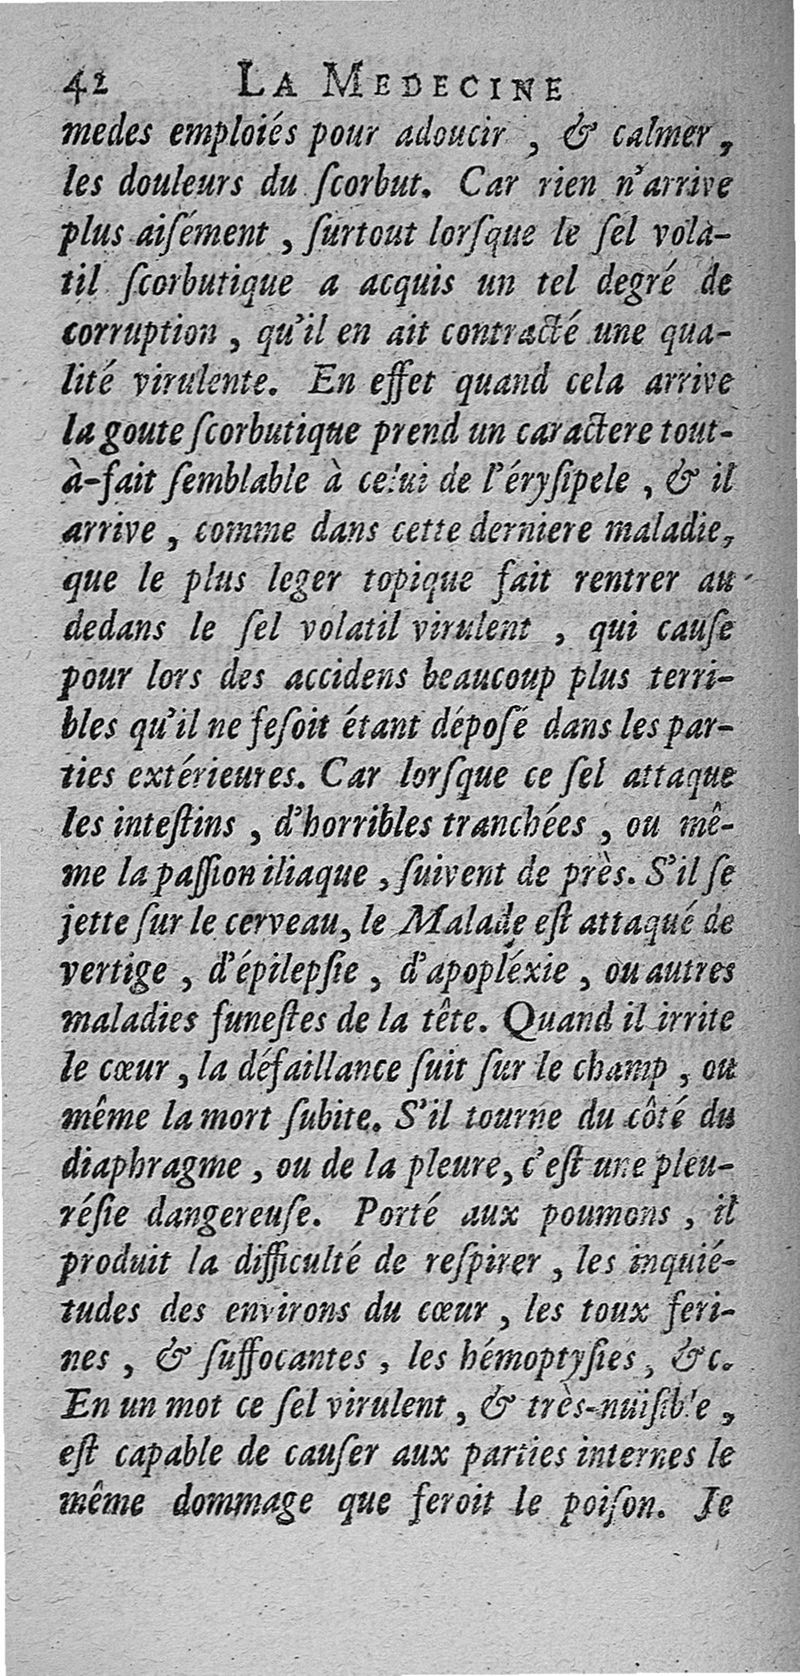 42 LA MEDECINE
medes emploiés pour adoucir , & calmer ,
les douleurs du ſcorbut. Car rien n'arrive
plus aiſément , ſurtout lorſque le ſel vola-
til ſcorbutique a acquis un tel degré de
corruption , qu'il en ait contracté une qua-
lité virulente. En effet quand cela arrive
la goute ſcorbutique prend un caractere tout-
à-fait ſemblable à celui de l'éryſipele , & il
arrive , comme dans cette derniere maladie,
que le plus leger topique fait rentrer au
dedans le ſel volatil virulent , qui cauſe
pour lors des accidens beaucoup plus terri-
bles qu'il ne feſoit étant dépoſé dans les par-
ties extérieures. Car lorſque ce ſel attaque
les inteſtins , d'horribles tranchées , ou mê-
me la paſſion iliaque , ſuivent de près. S'il ſe
jette ſur le cerveau, le Malade eſt attaqué de
vertige , d'épilepſie , d'apopléxie , ou autres
maladies funeſtes de la tête. Quand il irrite
le cœur , la défaillance ſuit ſur le champ , ou
même la mort ſubite. S'il tourne du côté du
diaphragme , ou de la pleure, c'eſt une pleu-
réſie dangereuſe. Porté aux poumons , il
produit la difficulté de reſpirer , les inquié-
tudes des environs du cœur , les toux feri-
nes , & ſuffocantes , les hémoptyſies , &c.
En un mot ce ſel virulent , & très-nuiſible ,
eſt capable de cauſer aux parties internes le
même dommage que feroit le poiſon. Je